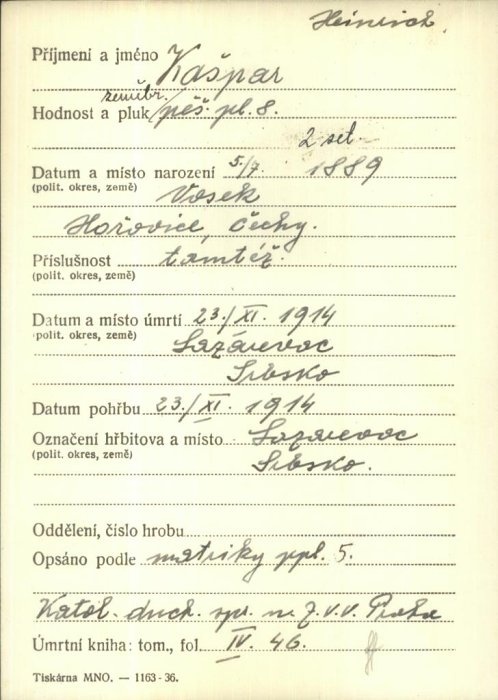 Heinrich
Příjmení a jméno Kašpar
zeměbr.
Hodnost a pluk pěš. pl. 8.
2 set.
Datum a místo narození 5./7 1889
(polit. okres, země) Vosek
Hořovice, Čechy.
Příslušnost tamtéž.
(polit. okres, země)
Datum a místo úmrtí 23./XI. 1914
polit. okres, země) Lazarevac
Srbsko
Datum pohřbu 23./XI. 1914
Označení hřbitova a místo Lazarevac
(polit. okres, země) Srbsko.
Oddělení, číslo hrobu
Opsáno podle matriky ppl. 5.
Katol. duch. spr. m Z. V. V. Praha
Úmrtní kniha: tom., fol. IV. 46.
Tiskárna MNO. — 1163-36.